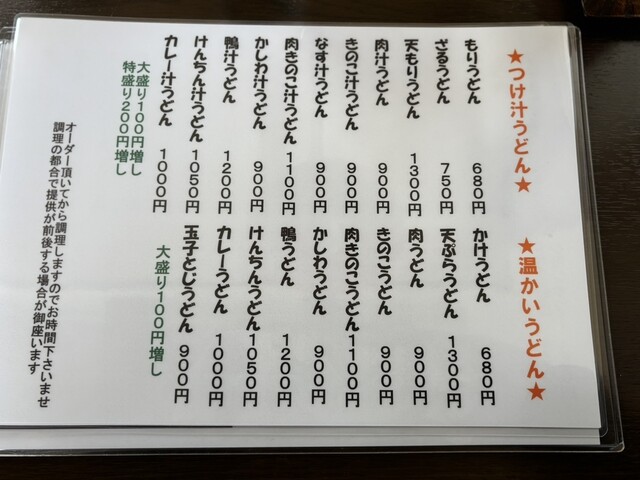 ★つけ汁うどん★
もりうどん 680円
ざるうどん 750円
天もりうどん 1300円
肉汁うどん 900円
きのこ汁うどん 900円
なす汁うどん 900円
肉きのこ汁うどん 1100円
かしわ汁うどん 900円
鴨汁うどん 1200円
けんちん汁うどん 1050円
カレー汁うどん 1000円
大盛り100円増し
特盛り200円増し
★温かいうどん★
かけうどん 680円
天ぷらうどん 1300円
肉うどん 900円
きのこうどん 900円
肉きのこうどん 1100円
かしわうどん 900円
鴨うどん 1200円
けんちんうどん 1050円
カレーうどん 1000円
玉子とじうどん 900円
大盛り100円増し
オーダー頂いてから調理しますのでお時間下さいませ
調理の都合で提供が前後する場合が御座います